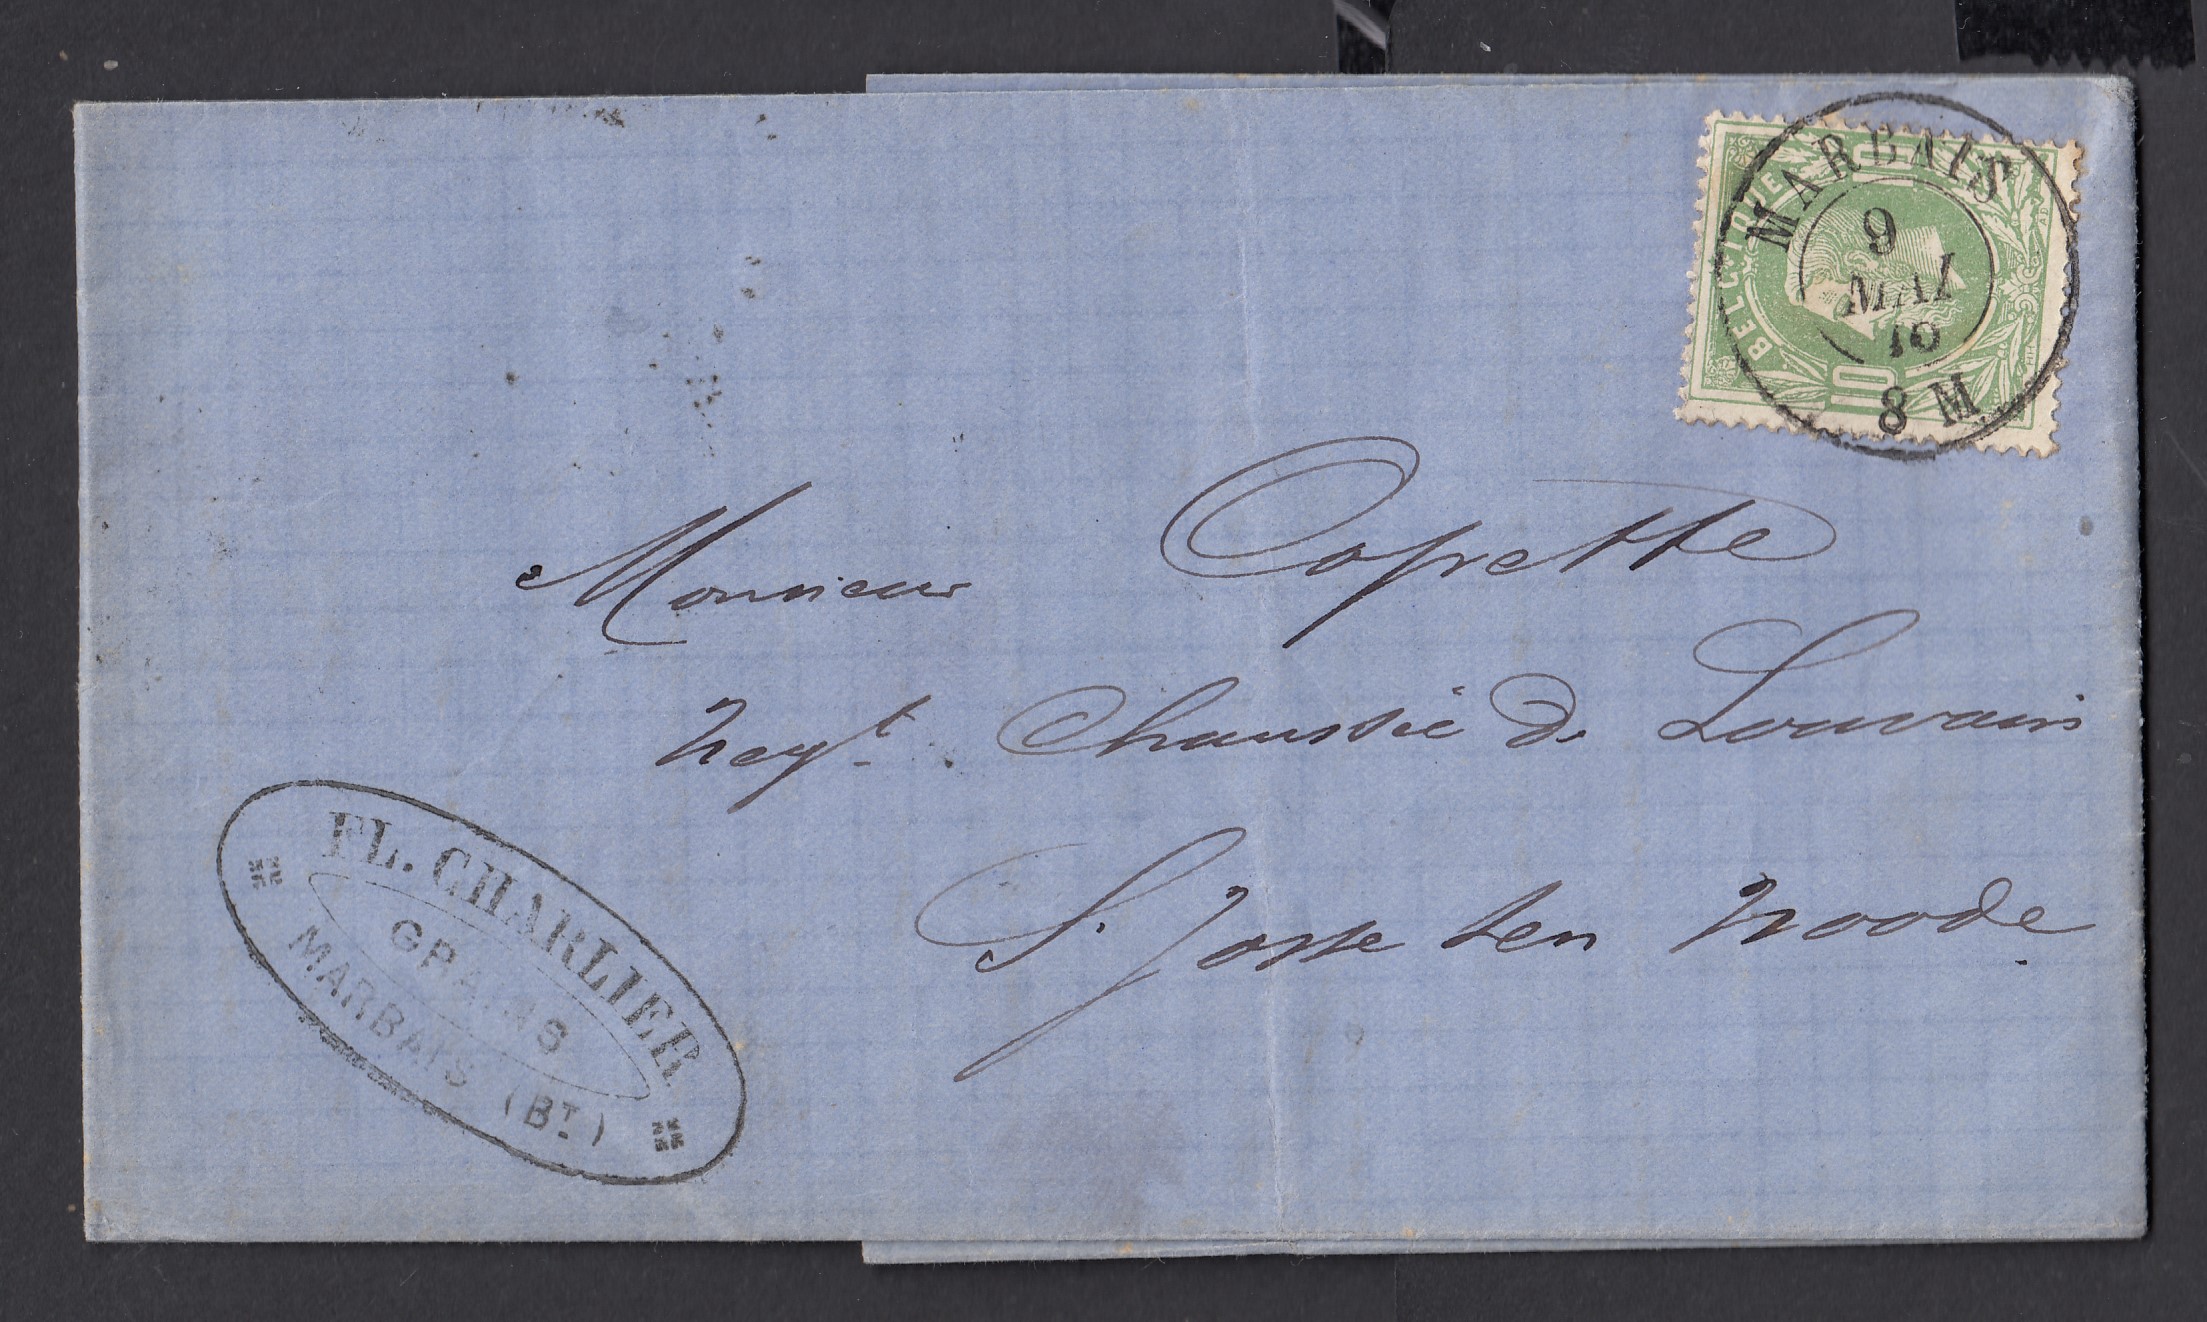 MARBAIS
9
MAI
8 M
BELGIQUE
10
10
Monsieur Copette
Negt. Chaussée de Louvain
St. Josse ten Noode.
FL. CHARLIER
GRAINS
MARBAIS (BT.)